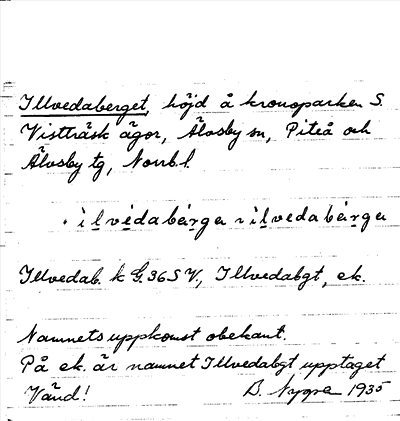 Illvedaberget, höjd å kronoparken S.
Vistträsk ägor, Älvsby sn, Piteå och
Älvsby tg, Norrb.l.
ìl̥vedabèr̥gə ~ ìl̥vedabèr̥gə
Illvedab. k G. 36 S V., Illvedabgt, ek.
Namnets uppkomst obekant.
På ek. är namnet Illvedabgt upptaget
Vänd! B. Nygra 1935